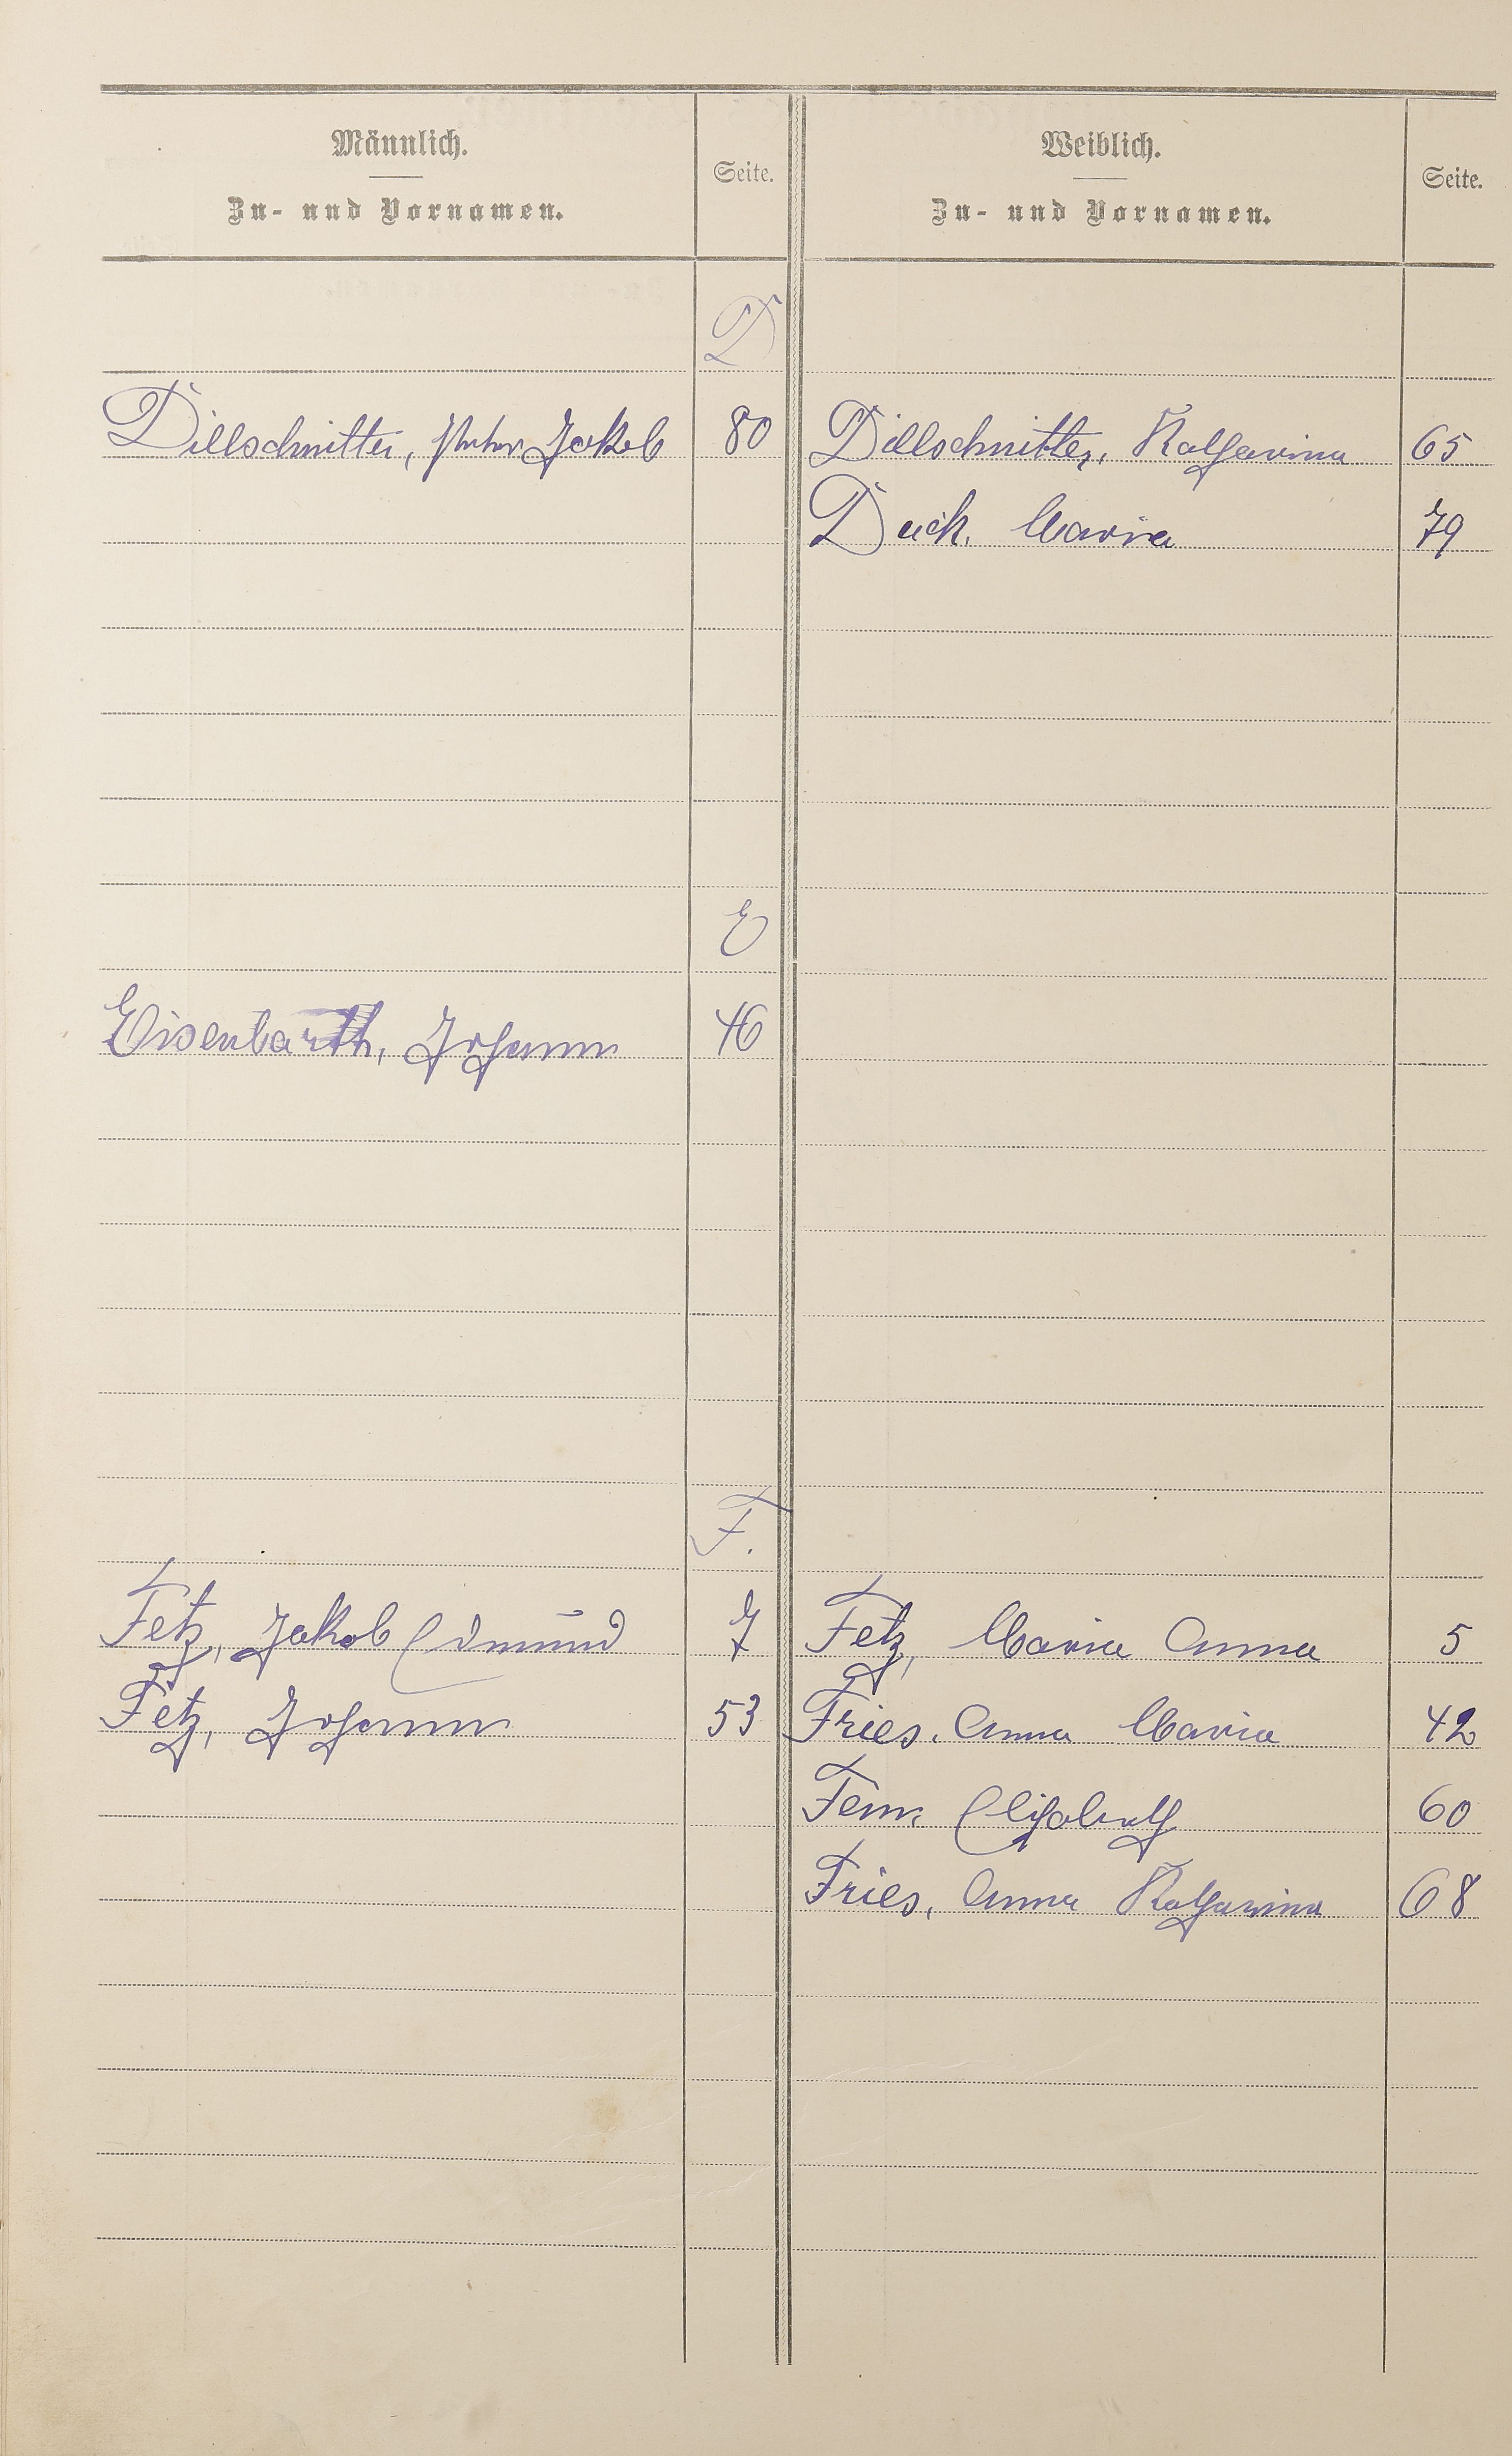 Männlich.
Zu- und Vornamen.
Seite.
Weiblich.
Zu- und Vornamen.
Seite.
D
Dillschnitter, Peter Jakob 80 Dillschnitter, Katharina 65
Duch, Maria 79
E
Eisenbarth, Johann 46
F.
Fetz, Jakob Edmund 7 Fetz, Maria Anna 5
Fetz, Johann 53 Fries, Anna Maria 42
Elisabeth 60
Fries, Anna Katharina 68